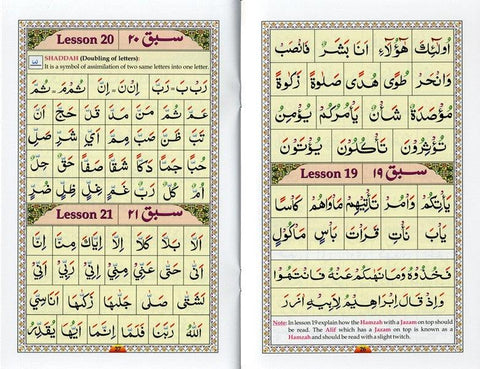 اُولٰٓئِكَ هٰٓؤُلَآءِ اَنَا بَشَرٌ فَانْصَبْ
وَانْحَرْ طُوًى هُدًى صَلٰوةً زَكٰوةً
مُؤْصَدَةٌ شَاْنٌ يَاْمُرُكُمْ يُؤْمِنُ
تُؤْثِرُوْنَ تَاْكُلُوْنَ يُؤْتَوْنَ
Lesson 19 سبق ١٩
يَاْتِكُمْ وَاْمُرْ تَاْتِيْهِمْ مَاْوٰهُمْ كَاْسًا
يَاْبَ نَاْتِ قَرَاْتَ بَاْسٍ مَاْكُوْلٍ
فَخُذُوْهُ وَمَا نَهٰىكُمْ عَنْهُ فَانْتَهُوْا
وَاِذْ قَالَ اِبْرٰهِيْمُ لِاَبِيْهِ اٰزَرَ
Note: In lesson 19 explain how the Hamzah with a Jazam on top should
be read. The Alif which has a Jazam on top is known as a
Hamzah and should be read with a slight twitch.
26
Lesson 20 سبق ٢٠
SHADDAH (Doubling of letters):
It is a symbol of assimilation of two same letters into one letter.
رَبْ بَ = رَبَّ اِنْ نَ = اِنَّ ثُمْ مَ = ثُمَّ
عَمَّ ثُمَّ مَنَّ مَدَّ قَدَّ حَجَّ اَنَّ
تَبَّ ظَنَّ صَبَّ مِمَّ اَيَّ شَرِّ صَلِّ
حُبًّا جَمًّا دَكًّا شَقًّا صَفًّا حَقٌّ حِلٌّ
اُمٌّ كُلٌّ رَبٌّ غَمٍّ غِلٍّ ظِلٍّ ضُرٍّ
Lesson 21 سبق ٢١
اَلَّا بَلَّا كَلَّا اِلَّا اِيَّاكَ مِنَّا اِنَّا
اَنّٰى حَتّٰى عَنِّيْ مِنِّيْ اِنِّيْ رَبِّيْ اَنِّيْ
لَشَتّٰى صَلّٰى جَلّٰىهَا زَكّٰىهَا اَنَاسِيَّ
اَللّٰهُ رَبَّنَا فَلَمَّا اِنَّمَا اَيُّهَا يُقَدِّرُ
27